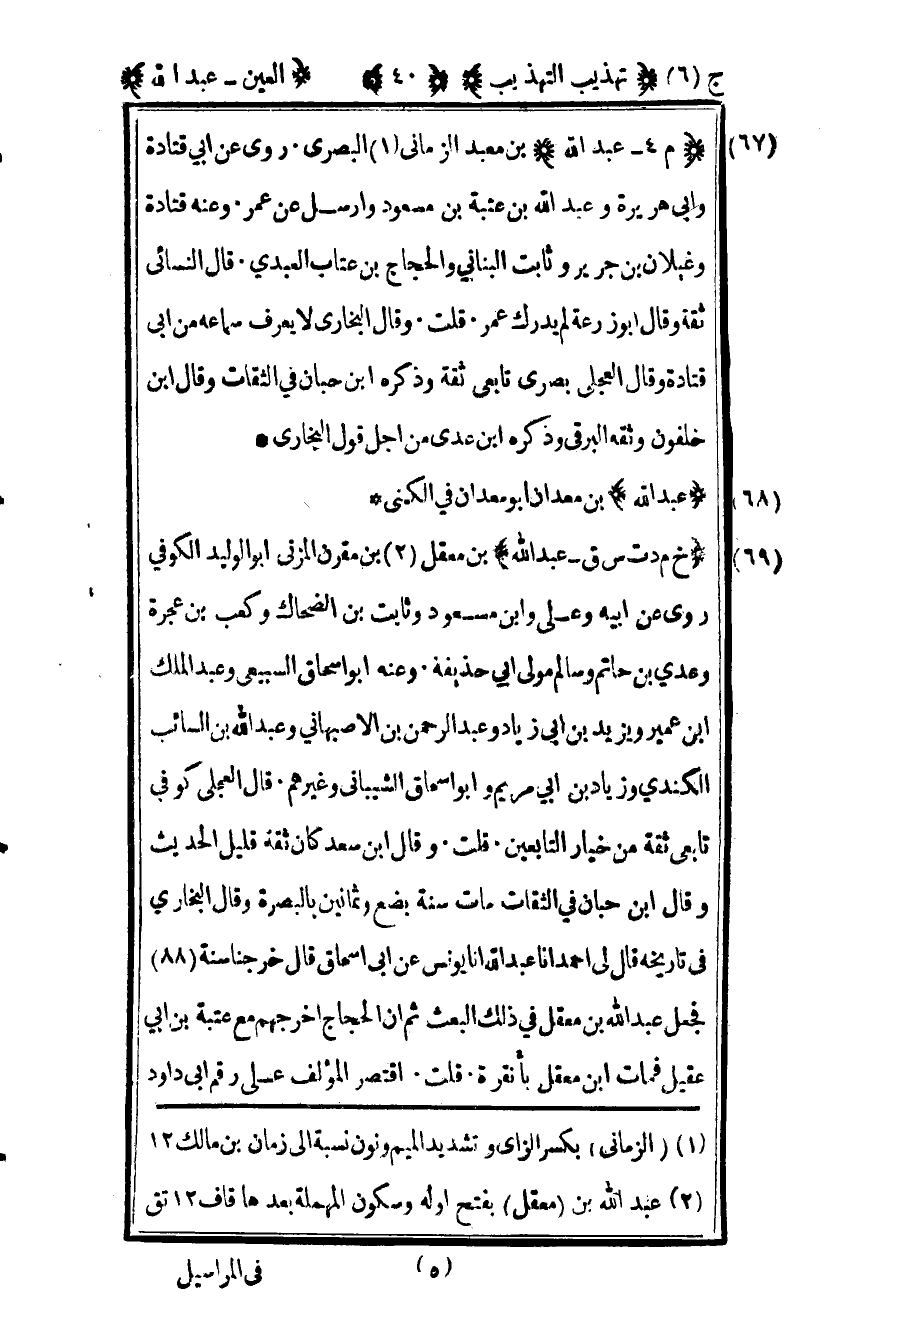 ج (٦) ﴿ تهذيب التهذيب ﴾ ﴿ ٤٠ ﴾ ﴿ العين ـ عبد الله ﴾
(٦٧) ﴿ م ٤ ـ عبد الله ﴾ بن معبد الزماني (١) البصرى · روى عن ابي قتادة
وابى هريرة و عبد الله بن عتبة بن مسعود وارسل عن عمر · وعنه قتادة
وغيلان بن جرير و ثابت البناني والحجاج بن عتاب العبدي · قال النسائى
ثقة وقال ابوزرعة لم يدرك عمر · قلت · وقال البخارى لا يعرف سماعه من ابى
قتادة وقال العجلى بصرى تابعى ثقة وذكره ابن حبان في الثقات وقال ابن
خلفون وثقه البرقى وذكره ابن عدى من اجل قول البخارى ●
(٦٨) ﴿ عبد الله ﴾ بن معدان ابو معدان في الكنى *
(٦٩) ﴿ خ م د ت س ق ـ عبد الله ﴾ بن معقل (٢) بن مقرن المزنى ابو الوليد الكوفي
روى عن ابيه وعلى وابن مسعود وثابت بن الضحاك وكعب بن عجرة
وعدي بن حاتم وسالم مولى ابي حذيفة · وعنه ابو اسحاق السبيعى وعبد الملك
ابن عمير ويزيد بن ابى زياد وعبد الرحمن بن الاصبهاني وعبد الله بن السائب
الكندي وزياد بن ابي مريم و ابو اسحاق الشيبانى وغيرهم · قال العجلى كوفي
تابعى ثقة من خيار التابعين · قلت · و قال ابن سعد كان ثقة قليل الحديث
و قال ابن حبان في الثقات مات سنة بضع وثمانين بالبصرة وقال البخاري
فى تاريخه قال لى احمد انا عبد الله انا يونس عن ابى اسحاق قال خرجنا سنة (٨٨)
فجعل عبد الله بن معقل في ذلك البعث ثم ان الحجاج اخرجهم مع عتبة بن ابي
عقيل فمات ابن معقل بأنقرة · قلت · اقتصر المؤلف على رقم ابى داود
(١) (الزمانى) بكسر الزاى و تشديد الميم ونون نسبة الى زمان بن مالك ١٢
(٢) عبد الله بن (معقل) بفتح اوله وسكون المهملة بعدها قاف ١٢ تق
(٥) فى المراسيل